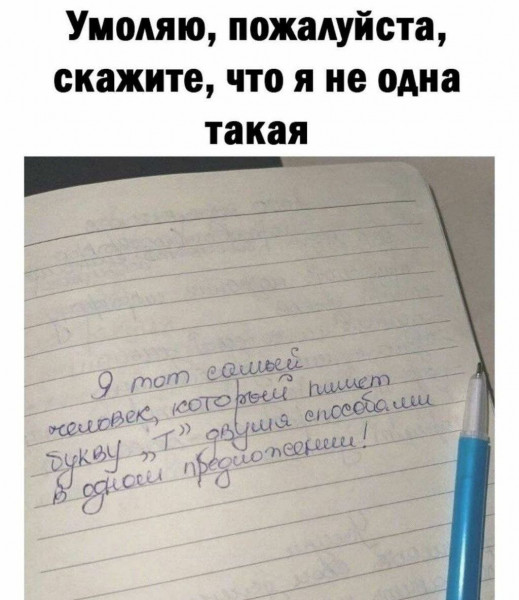 Умоляю, пожалуйста,
скажите, что я не одна
такая
Я тот самый
человек, который пишет
букву „Т” двумя способами
в одном предложении!